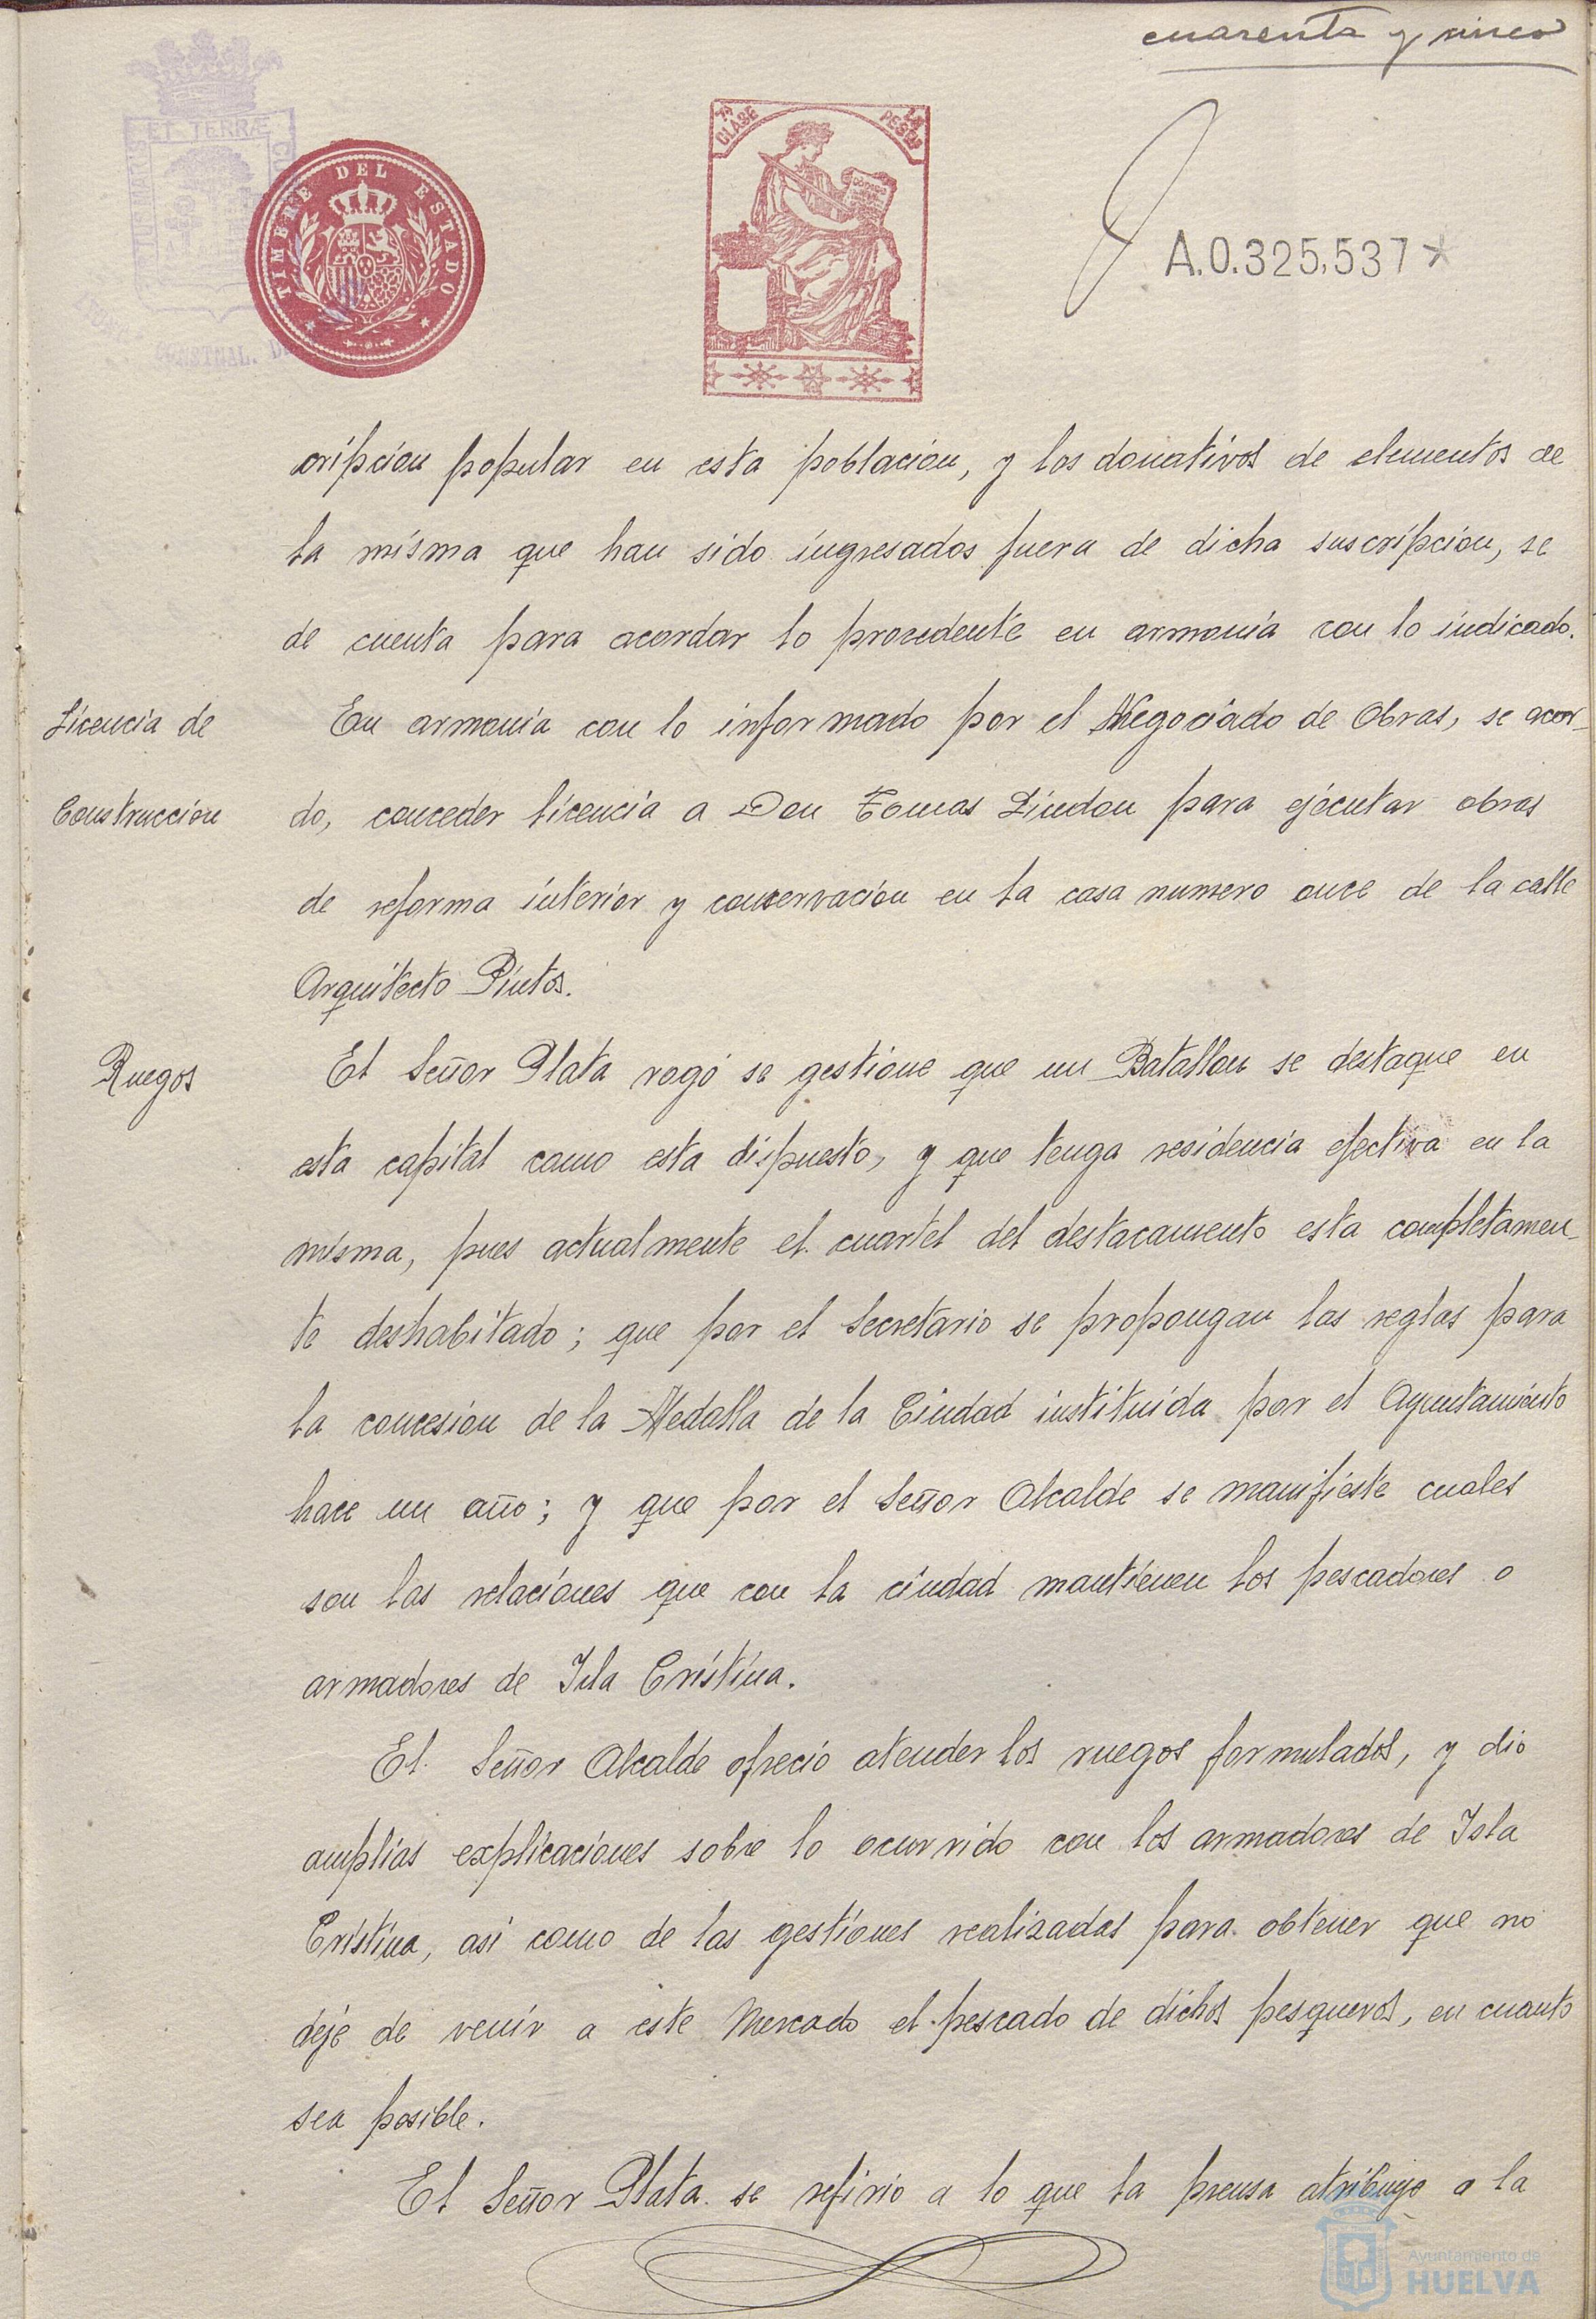 cuarenta y cinco
ET TERRÆ
TIMBRE DEL ESTADO
7ª CLASE
PESETA
A.0.325,537*
cripcion popular en esta poblacion, y los donativos de elementos de
la misma que han sido ingresados fuera de dicha suscripcion, se
de cuenta para acordar lo procedente en armonia con lo indicado.
Licencia de
En armonia con lo informado por el Negociado de Obras, se acor-
Construccion
do, conceder licencia a Don Tomas Lindon para ejecutar obras
de reforma interior y conservacion en la casa numero once de la calle
Arquitecto Pintos.
Ruegos
El Señor Plata rogó se gestione que un Batallon se destaque en
esta capital como esta dispuesto, y que tenga residencia efectiva en la
misma, pues actualmente el cuartel del destacamento esta completamen-
te deshabitado; que por el Secretario se propongan las reglas para
la concesion de la Medalla de la Ciudad instituida por el Ayuntamiento
hace un año; y que por el Señor Alcalde se manifieste cuales
son las relaciones que con la ciudad mantienen los pescadores o
armadores de Isla Cristina.
El Señor Alcalde ofreció atender los ruegos formulados, y dio
amplias explicaciones sobre lo ocurrido con los armadores de Isla
Cristina, asi como de las gestiones realizadas para obtener que no
deje de venir a este Mercado el pescado de dichos pesqueros, en cuanto
sea posible.
El Señor Plata se refirio a lo que la prensa atribuye a la
Ayuntamiento de
HUELVA